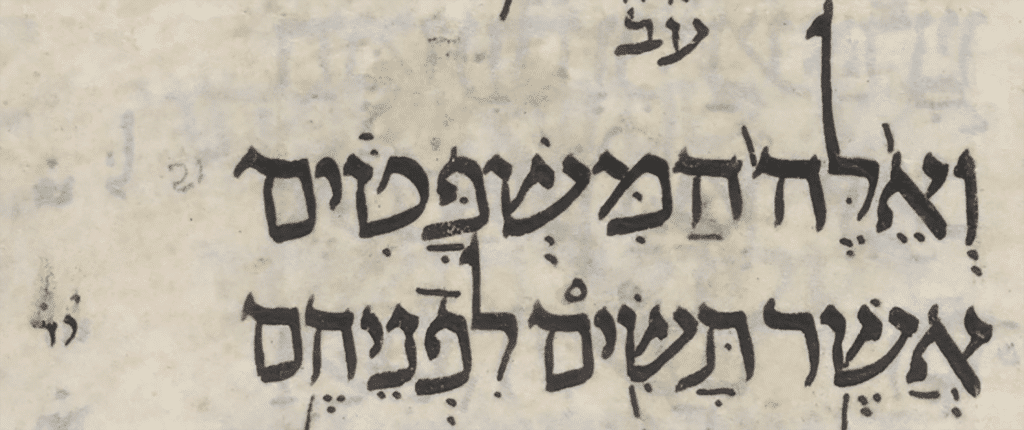 עב
וְאֵלֶּה הַמִּשְׁפָּטִים
אֲשֶׁר תָּשִׂים לִפְנֵיהֶם